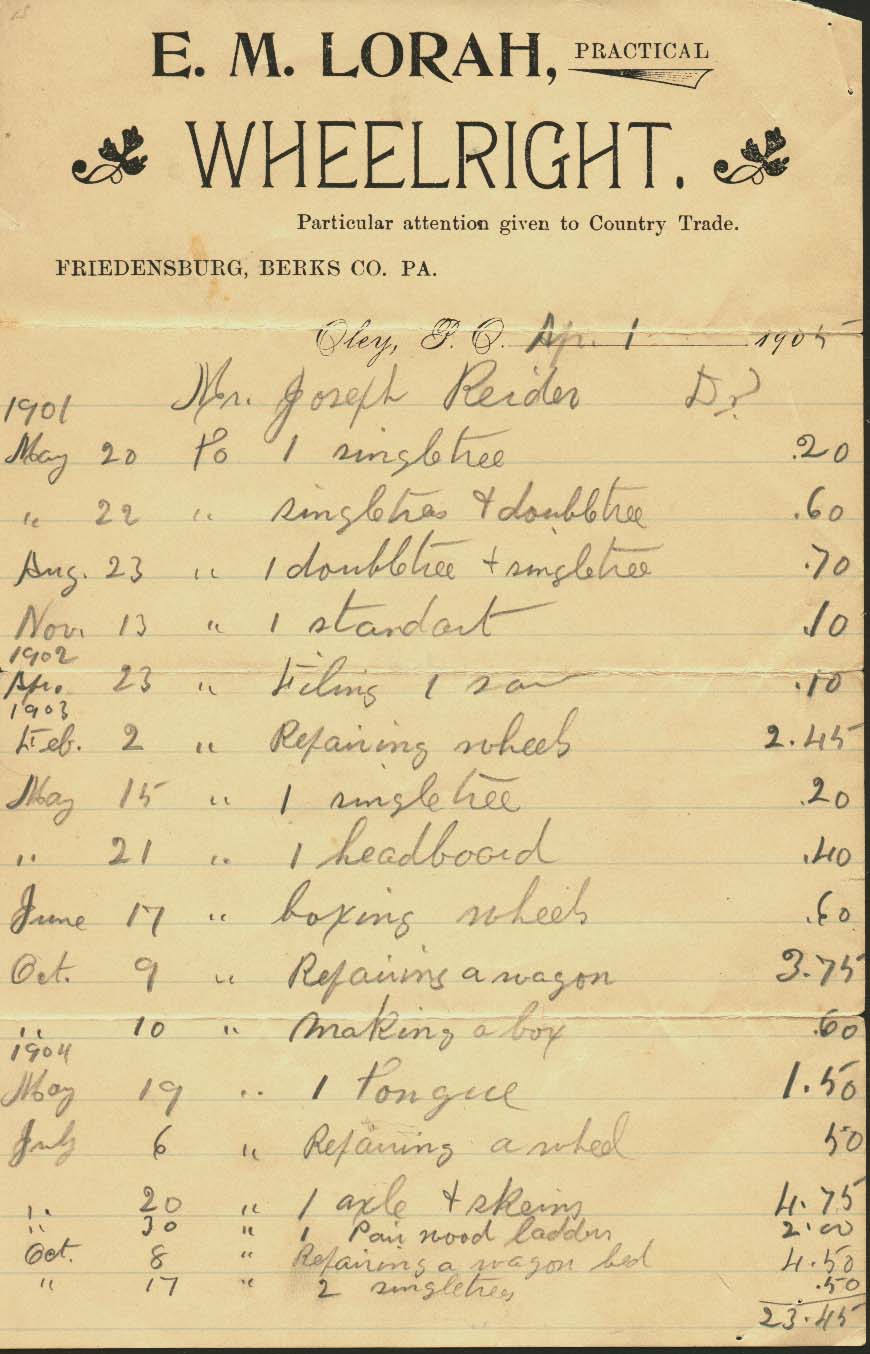 E. M. LORAH, PRACTICAL
WHEELRIGHT.
Particular attention given to Country Trade.
FRIEDENSBURG, BERKS CO. PA.
Oley, P. O. Apr. 1 1905
Mr. Joseph Reider Dr
1901
May 20 To 1 singletree .20
" 22 " singletrees & doubletree .60
Aug. 23 " 1 doubletree + singletree .70
Nov. 13 " 1 standart .10
1902
Apr. 23 " Filing 1 saw .10
1903
Feb. 2 " Repairing wheels 2.45
May 15 " 1 singletree .20
" 21 " 1 headboard .40
June 17 " boxing wheels .60
Oct. 9 " Repairing a wagon 3.75
" 10 " making a box .60
1904
May 19 " 1 Tongue 1.50
July 6 " Repairing a wheel 50
" 20 " 1 axle & skeins 4.75
" 30 " 1 Pair wood ladders 2.00
Oct. 8 " Repairing a wagon bed 4.50
" 17 " 2 singletrees .50
23.45